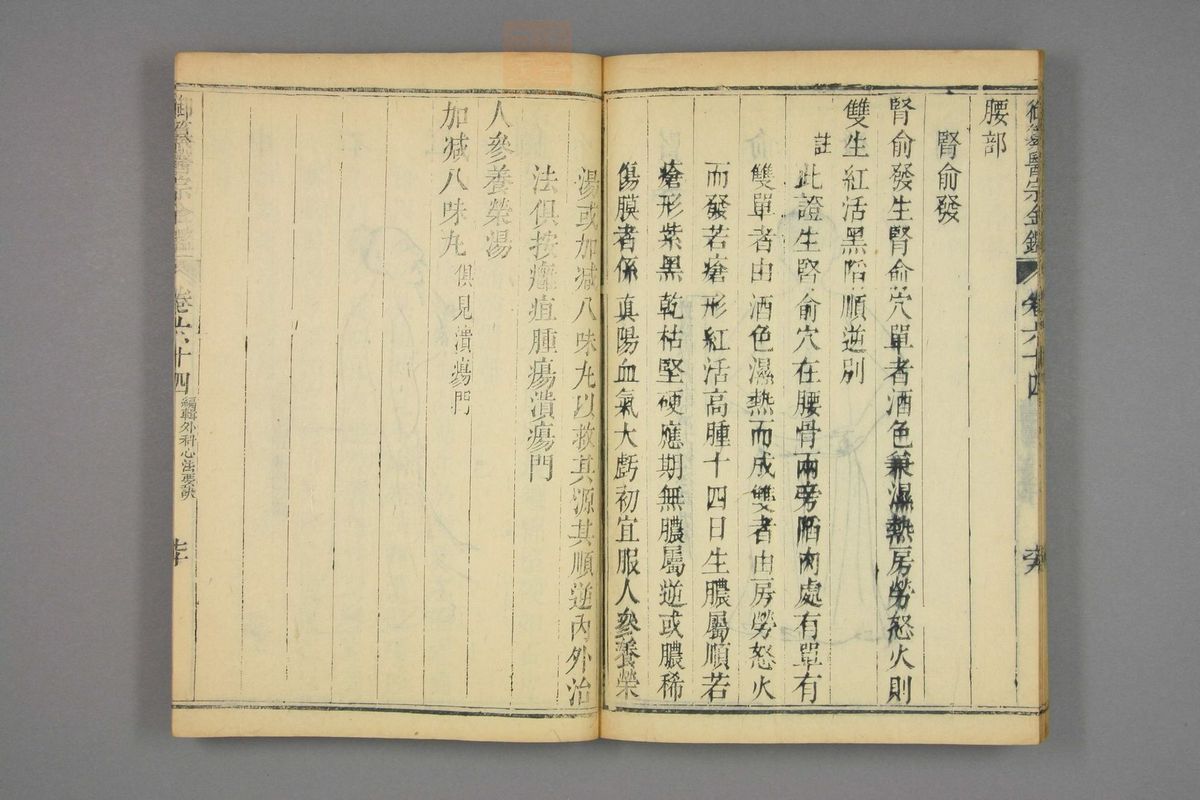 御纂醫宗金鑑
卷六十四
腰部
腎俞發
腎俞發生腎俞穴單者酒色兼濕熱房勞怒火則
雙生紅活黑陷順逆別
註
此證生腎俞穴在腰骨兩旁陷肉處有單有
雙單者由酒色濕熱而成雙者由房勞怒火
而發若瘡形紅活高腫十四日生膿屬順若
瘡形紫黑乾枯堅硬應期無膿屬逆或膿稀
傷膜者係真陽血氣大虧初宜服人參養榮
湯或加減八味丸以救其源其順逆內外治
法俱按癰疽腫瘍潰瘍門
人參養榮湯
加減八味丸 俱見潰瘍門
御纂醫宗金鑑
卷六十四 編輯外科心法要訣